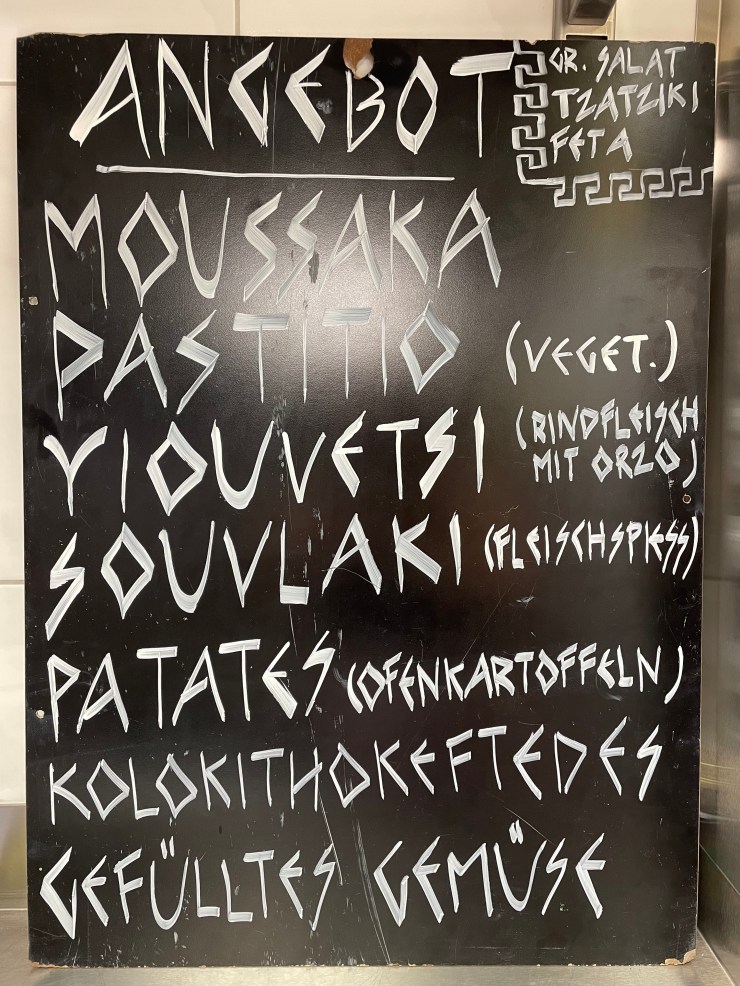 ANGEBOT
GR. SALAT
TZATZIKI
FETA
MOUSSAKA
PASTITIO (VEGET.)
YIOUVETSI (RINDFLEISCH
MIT ORZO)
SOUVLAKI (FLEISCHSPIESS)
PATATES (OFENKARTOFFELN)
KOLOKITHOKEFTEDES
GEFÜLLTES GEMÜSE